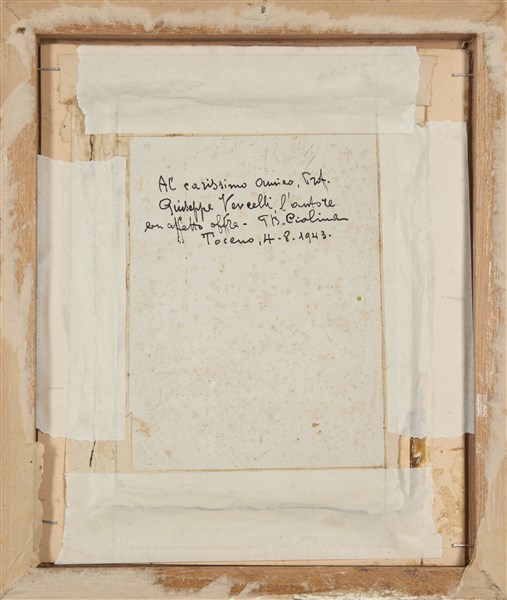 Al carissimo amico, Prof.
Giuseppe Vercelli l'autore
con affetto offre - GB. Ciolina
Toceno, 4-8-1943.